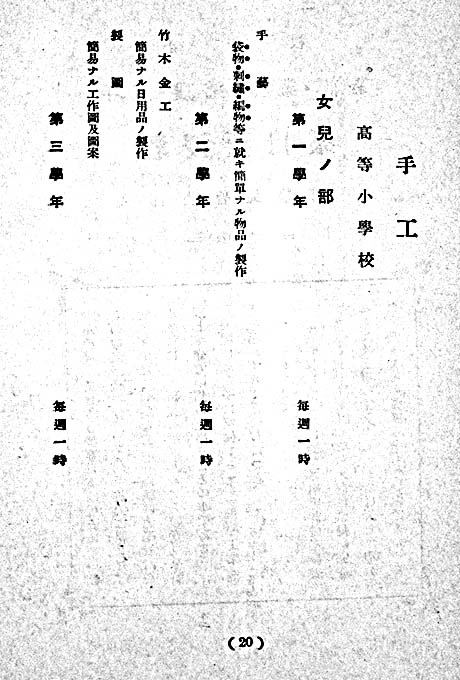 手工
高等小學校
女兒ノ部
第一學年 每週一時
手藝
袋物・刺繡・編物等ニ就キ簡單ナル物品ノ製作
第二學年 每週一時
竹木金工
簡易ナル日用品ノ製作
製圖
簡易ナル工作圖及圖案
第三學年 每週一時
(20)